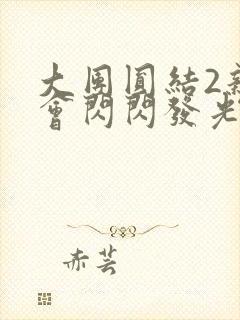 大團圓結2
會閃閃發光
赤芸